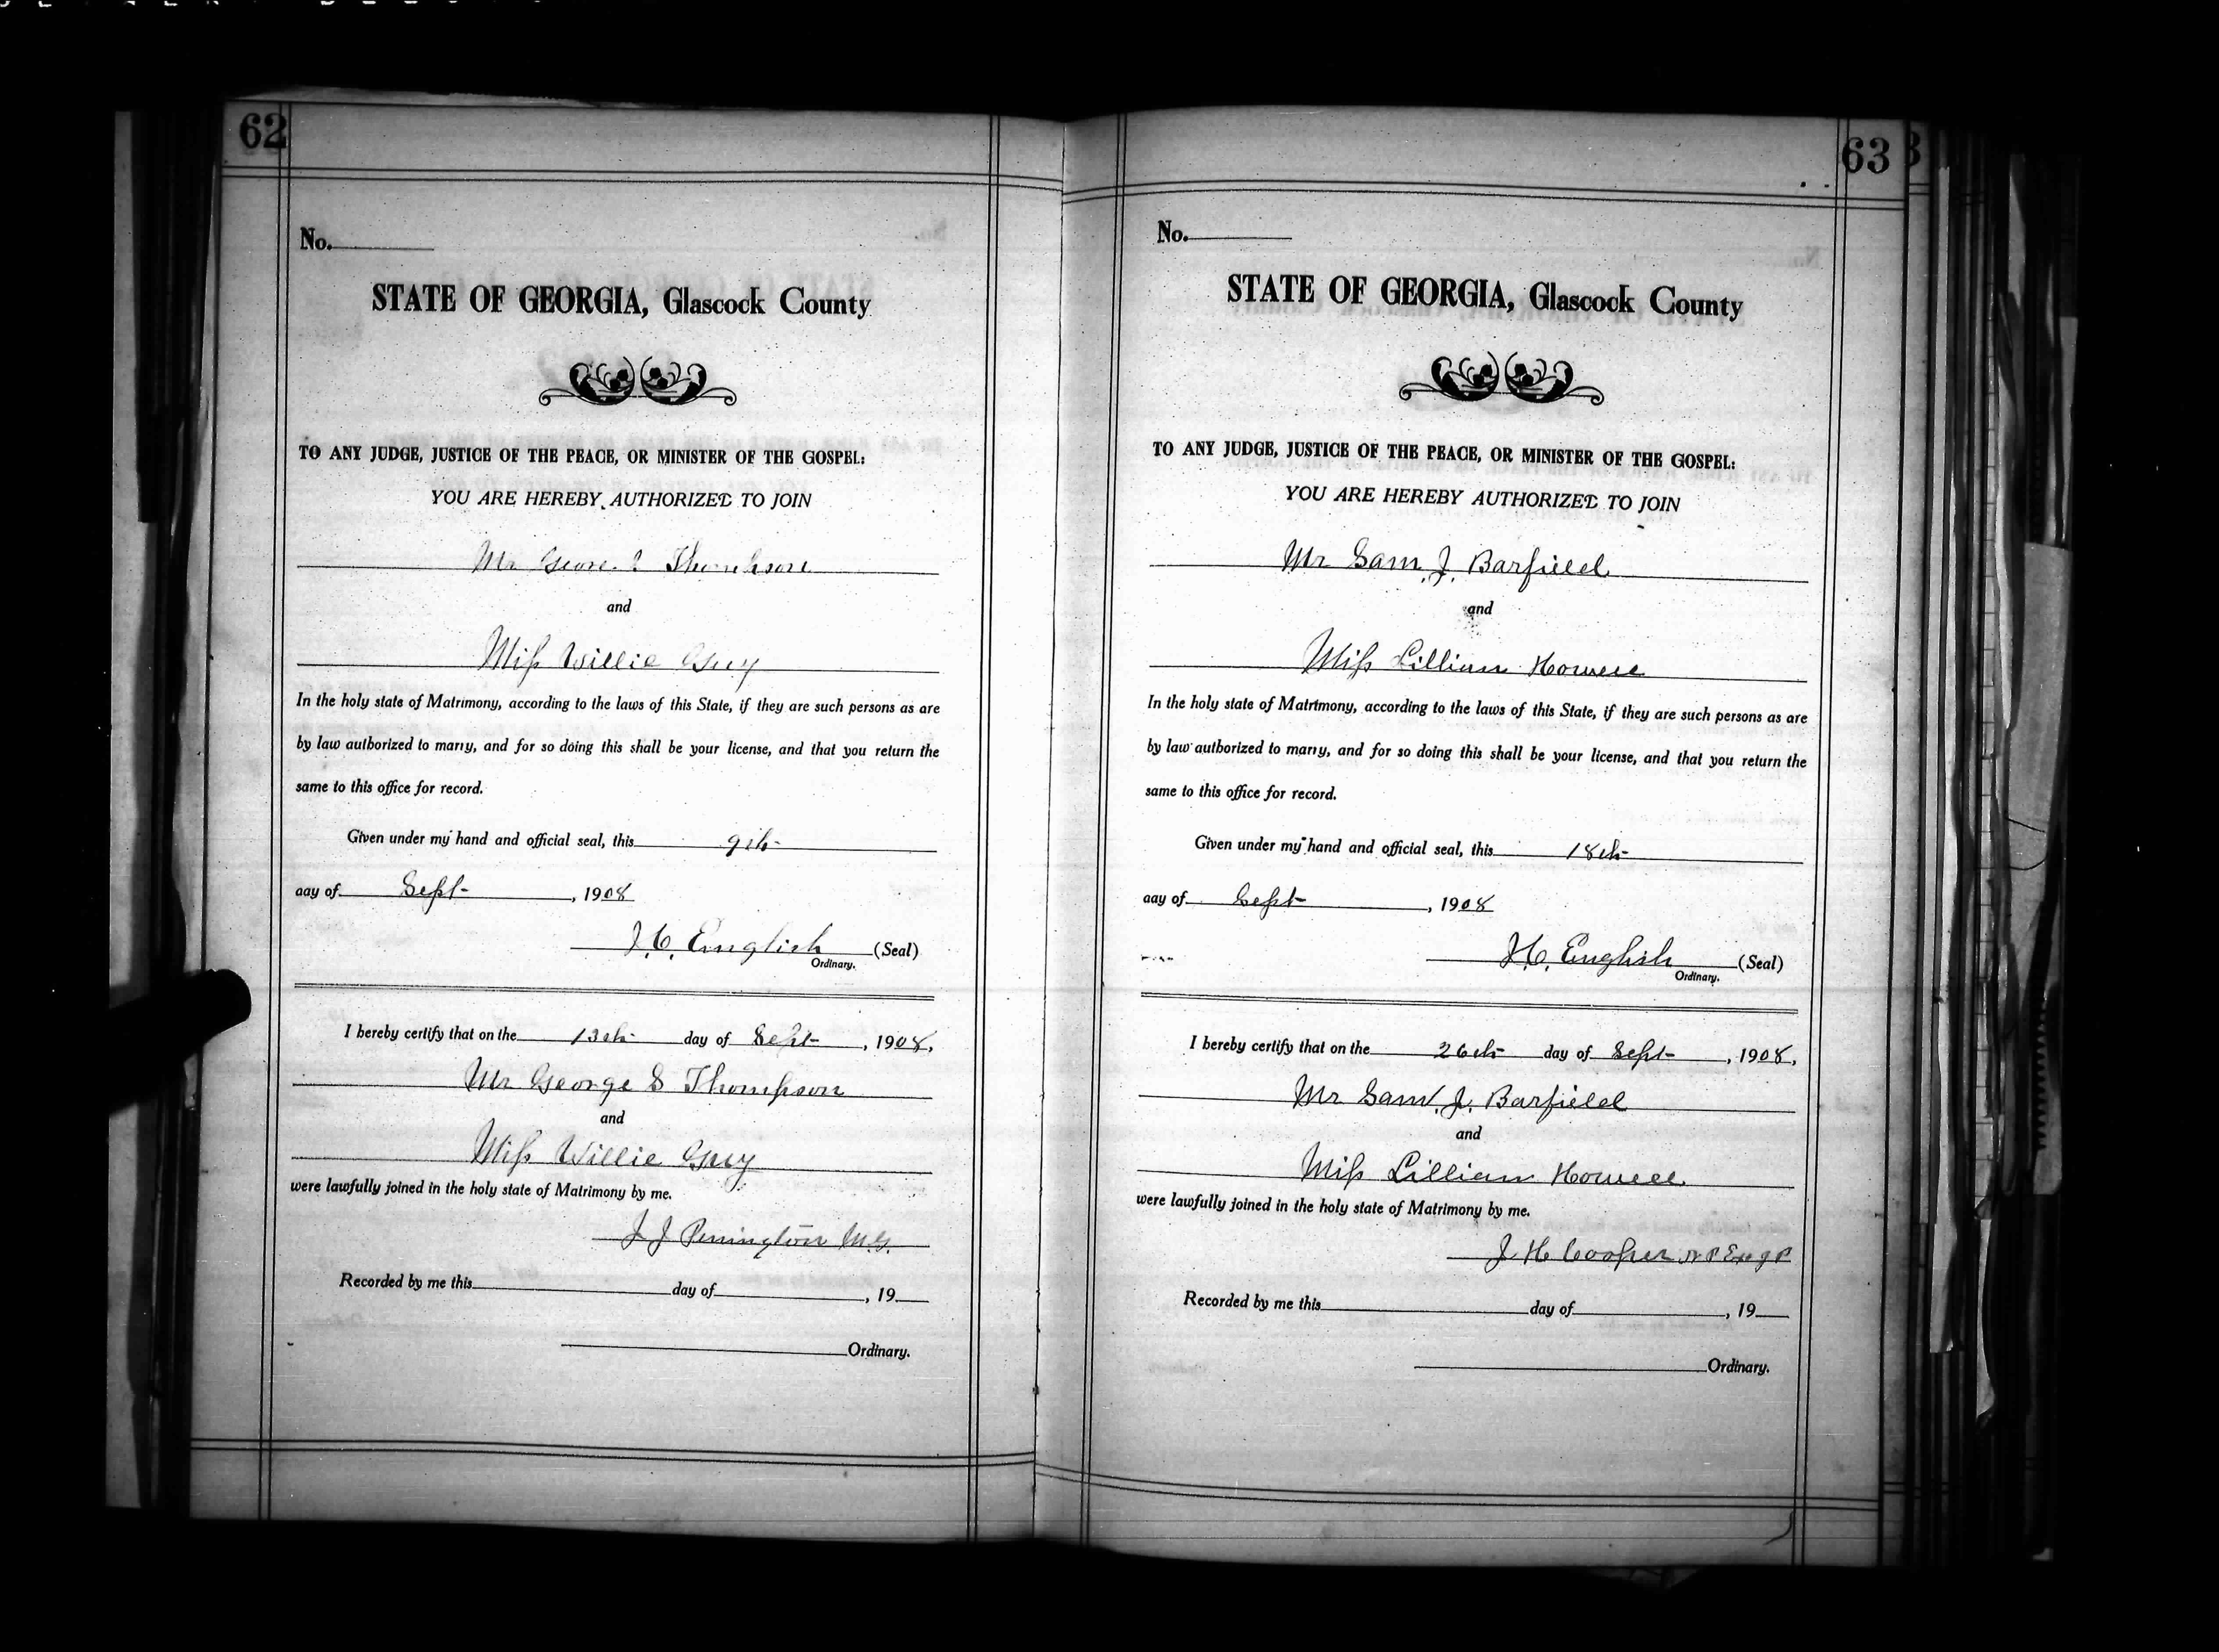 62
No.
STATE OF GEORGIA, Glascock County
TO ANY JUDGE, JUSTICE OF THE PEACE, OR MINISTER OF THE GOSPEL:
YOU ARE HEREBY AUTHORIZED TO JOIN
Mr George S Thompson
and
Miss Willie Guy
In the holy state of Matrimony, according to the laws of this State, if they are such persons as are
by law authorized to marry, and for so doing this shall be your license, and that you return the
same to this office for record.
Given under my hand and official seal, this 9th
day of Sept , 1908
J. C. English (Seal)
Ordinary.
I hereby certify that on the 13th day of Sept , 1908,
Mr George S Thompson
and
Miss Willie Guy
were lawfully joined in the holy state of Matrimony by me.
J J Penington M.G.
Recorded by me this day of , 19
Ordinary.
63
No.
STATE OF GEORGIA, Glascock County
TO ANY JUDGE, JUSTICE OF THE PEACE, OR MINISTER OF THE GOSPEL:
YOU ARE HEREBY AUTHORIZED TO JOIN
Mr Sam. J. Barfield
and
Miss Lillian Howell
In the holy state of Matrimony, according to the laws of this State, if they are such persons as are
by law authorized to marry, and for so doing this shall be your license, and that you return the
same to this office for record.
Given under my hand and official seal, this 18th
day of Sept , 1908
J. C. English (Seal)
Ordinary.
I hereby certify that on the 26th day of Sept , 1908,
Mr Sam. J. Barfield
and
Miss Lillian Howell
were lawfully joined in the holy state of Matrimony by me.
J. H. Cooper N P Ex J P
Recorded by me this day of , 19
Ordinary.